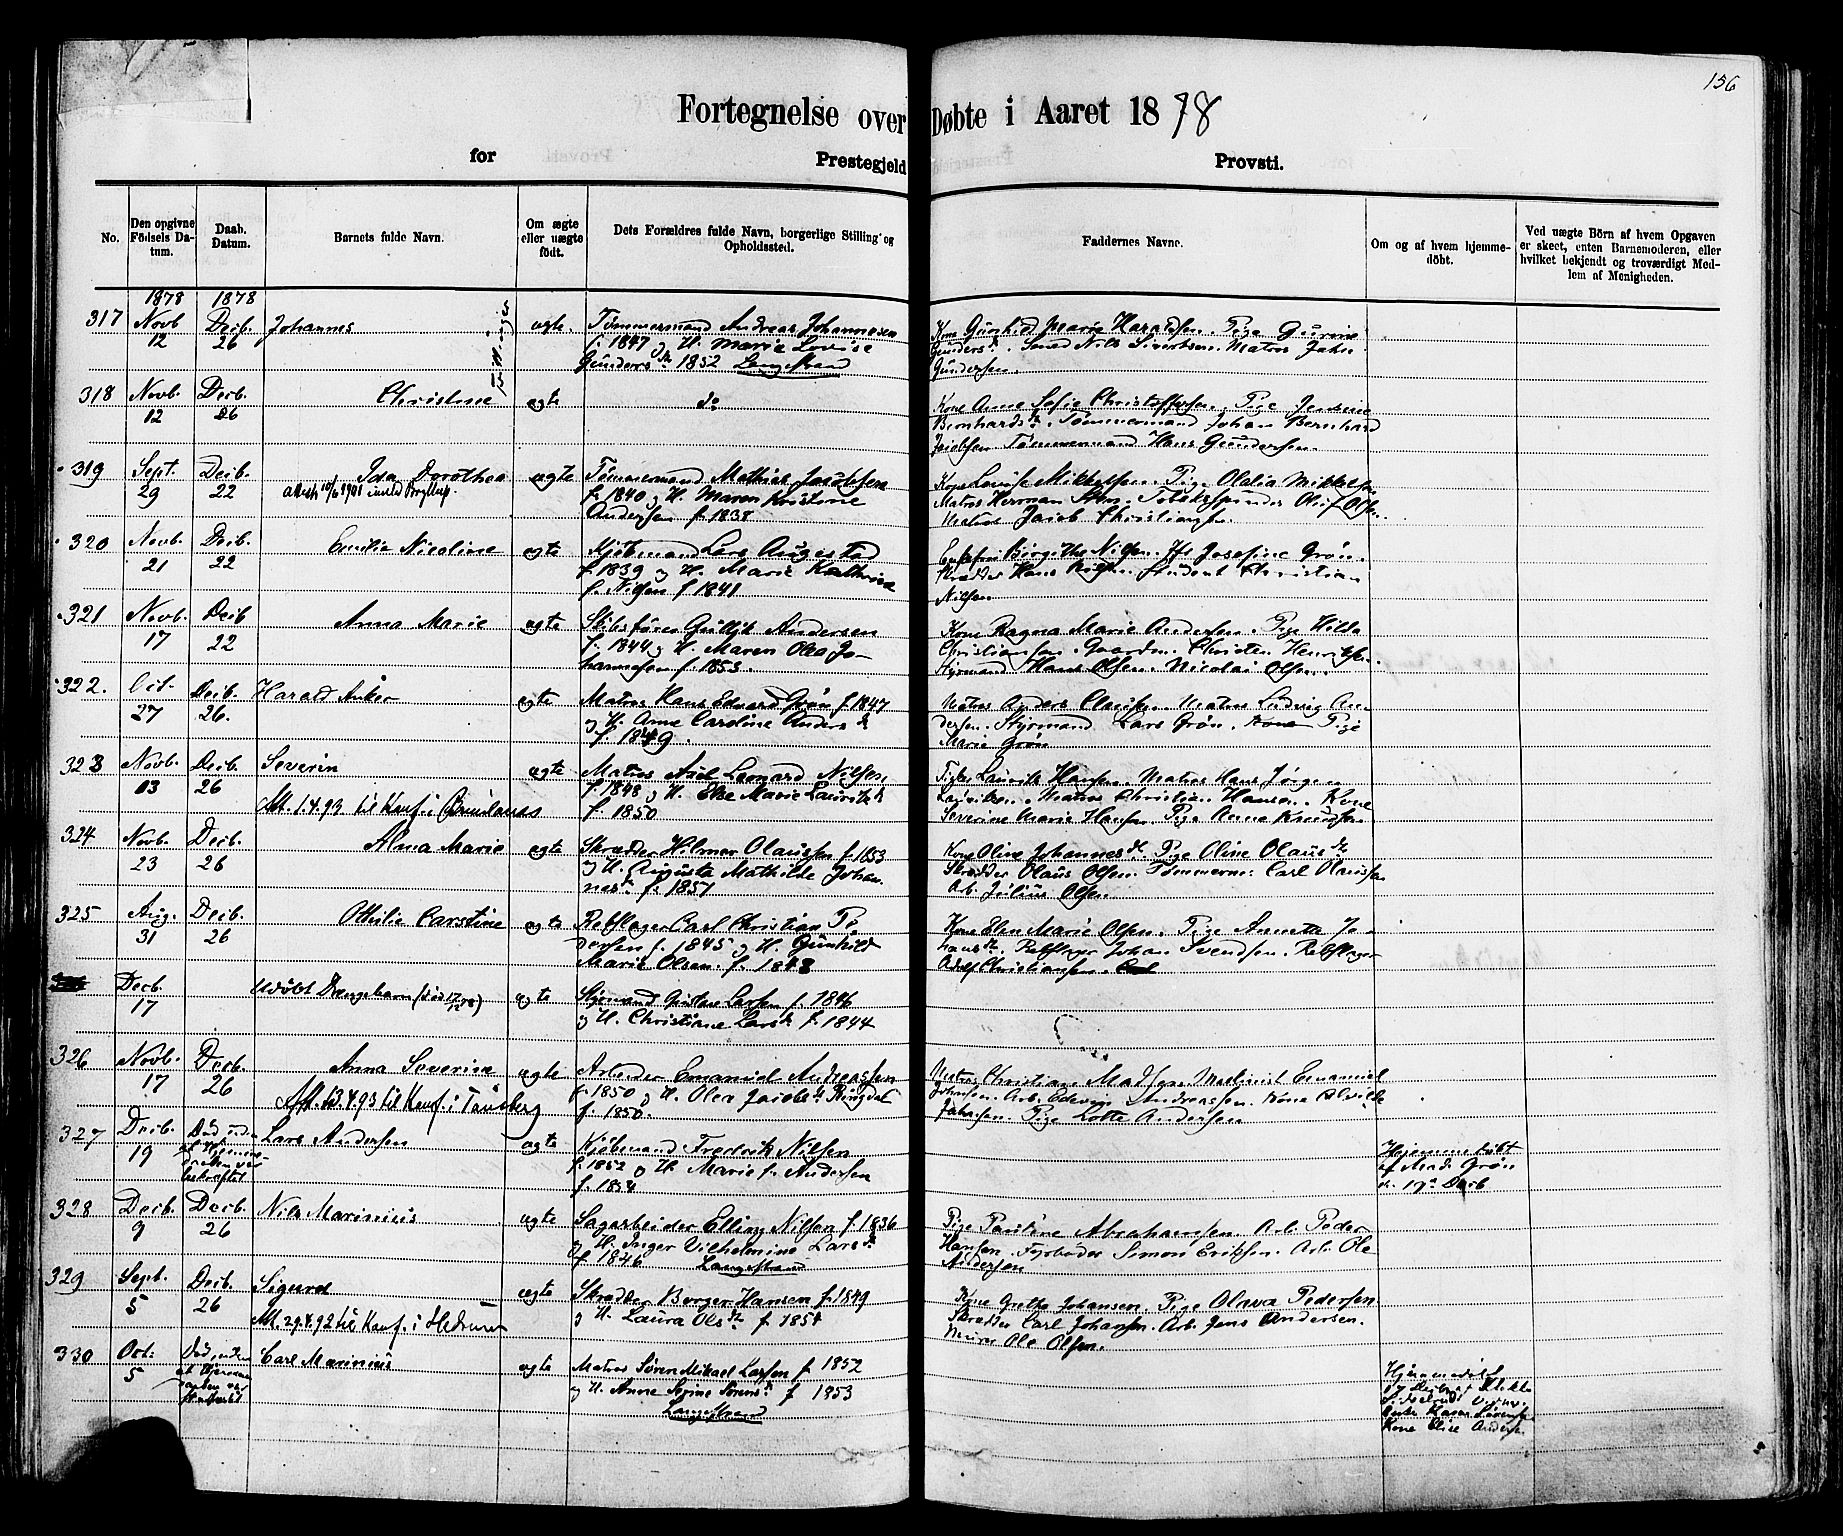 156
Fortegnelse over Døbte i Aaret 1878
for Prestegjeld Provsti.
No.
Den opgivne Födsels Datum.
Daab. Datum.
Barnets fulde Navn.
Om ægte eller uægte födt.
Dets Forældres fulde Navn, borgerlige Stilling og Opholdssted.
Faddernes Navne.
Om og af hvem hjemmedöbt.
Ved uægte Börn af hvem Opgaven er skeet, enten Barnemoderen, eller hvilket bekjendt og troværdigt Medlem af Menigheden.
1878 1878
317 Novb 12 Decb. 26 Johannes
Tvillinger
ægte.
Tømmermand Andreas Johannesen
f. 1847 og H. Marie Lovise
Gunders dr 1852 Langestrand
Kone Gunhild Marie Haraldsen. Pige Gurine
Gunders dr. Smed Nils Sivertsen. Matros Johan
Gundersen.
318 Novb. 12 Decb. 26 Christine ægte do
Kone Anne Sofie Christoffersen. Pige Jensine
Bernhards dr. Tømmermand Johan Bernhard
Jacobsen Tømmermand Hans Gundersen.
319 Sept. 29 Decb. 22 Ida Dorothea ægte
Attest 10/6 1901 imeld Bryllup.
Tømmermand Mathias Jacobsen
f. 1840 og H. Maren Kristine
Andersen f. 1838.
Kone Louise Mikkelsen. Pige Olelia Mikkelsen
Matros Herman Olluf Olsen.
Matros Jacob Christiansen.
320 Novb. 21 Decb. 22 Emilie Nicoline ægte
Kjøbmand Lars Augestad
f. 1839 og H. Marie Kathrine
f. Nilsen f 1841
Enkefru Birgithe Nilsen. Josefine Grøn.
Skrædder Hans Nilsen. Student Christian
Nilsen
321 Novb. 17 Decb 22 Anna Marie ægte
Skibsfører Gullik Andersen
f. 1844 og H. Maren Olea Jo-
hannesen f. 1853.
Kone Ragna Marie Andersen. Pige Hilda
Christiansen. Gaardm. Christen Henriksen.
Styrmand Hans Olsen. Nicolai Olsen.
322. Oct. 27 Decb. 26. Harald Anker ægte
Matros Hans Edvard Grøn f. 1847
og H. Anne Caroline Anders dr
f. 1849.
Matros Anders Clausen. Matros Ludvig An-
dersen. Styrmand Lars Grøn. Kone Pige
Marie Grøn
323 Novb. 03 Decb. 26 Severin ægte
Att. 1.4.93 til Konf. i Brunlanes
Matros Axel Leonard Nilsen
f. 1848 og H. Else Marie Laurits dr
f. 1850
Pige Laurits Hansen. Matros Hans Jørgen
Lauritsen. Matros Christian Hansen. Kone
Severine Marie Hansen. Pige Anna Knudsen
324 Novb. 23 Decb. 26 Alma Marie ægte
Skrædder Hilmar Olaussen f. 1853
og H. Augusta Mathilde Johan-
nes dr f. 1851
Kone Oline Johannes dr. Pige Oline Olaus dr
Skrædder Olaus Olsen. Tømmerm: Carl Olaussen
Arb. Julius Olsen
325 Aug. 31 Decb. 26 Othilie Carstine ægte
Rebslager Carl Christian Pe-
dersen f. 1845 og H. Gunhild
Marie Olsen. f. 1848
Kone Elen Marie Olsen. Pige Annette Jo-
hans dr. Rebslager Johan Svendsen. Rebslager
Adolf Christiansen.
Decb. 17 udøbt Drengebarn (død 17/12 78) ægte
Styrmand Gustav Larsen f. 1846
og H. Christiane Lars dr f. 1844
326 Novb. 17 Decb. 26 Anna Severine ægte
Att. 13.4.93 til Konf. i Tønsberg
Arbeider Emanuel Andreassen
f. 1850 og H. Olea Jacobs dr Ringdal
f. 1850.
Matros Christian Madsen. Maskinist Emanuel
Johansen. Arb. Edevin Andreassen. Kone Alvilde
Johansen. Pige Lotte Andersen
327 Decb. 19 Død uden at Hjemme-
daaben var
bekræftet
Lars Andersen ægte
Kjøbmand Fredrik Nilsen
f. 1852 og H. Marie f. Andersen
f. 1854
Hjemmedøbt
af Mad. Grøn
d. 19de Decb
328 Decb. 9 Decb. 26 Nils Marinius ægte
Sagarbeider Elling Nilsen f. 1836
og H. Inger Vilhelmine Lars dr
f. 1846 Langestrand
Pige Pauline Abrahamsen. Arb. Peder
Hansen. Fyrbøder Simon Eriksen. Arb. Ole
Andersen
329 Sept. 5 Decb. 26 Sigurd ægte
Att. 29.4.92 til Konf. i Hedrum
Skrædder Borger Hansen f. 1849
og H. Laura Ols dr f. 1854
Kone Grethe Johansen. Pige Olava Pedersen.
Skrædder Carl Johansen. Arb. Jens Andersen.
Murer Ole Olsen.
330 Oct: 5 Død uden
at Hjemme-
daaben var
stadfæstet
Carl Marinius ægte
Matros Søren Mikael Larsen f. 1852
og H. Anne Sørens dr f 1853
Langestrand
Hjemmedøbt
Kone Elise Andersen